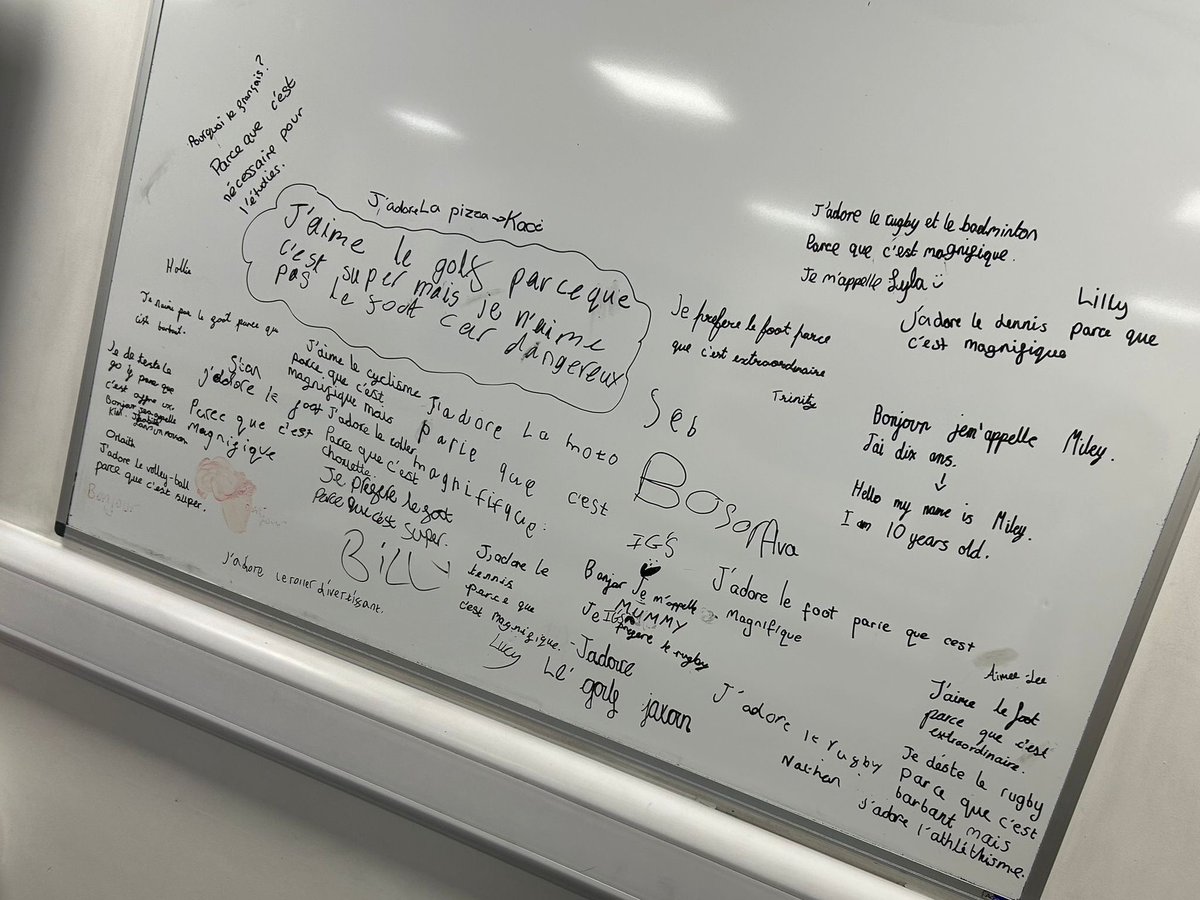 Pourquoi le français?
Parce que c'est
nécessaire pour
l'étudies.
J'adore La pizza → Kaci
J'aime le golf parceque
c'est super mais je n'aime
pas le foot car dangereux
Seb
J'adore le rugby et le badminton
Parce que c'est magnifique.
Je m'appelle Lyla
Lilly
j'adore le dennis parce que
c'est magnifique
Je prefere le foot parce
que c'est extraordinaire
Trinity
Bonjour jem'appelle Miley.
J'ai dix ans.
↓
Hello my name is Miley.
I am 10 years old.
Hollie
Je n'aime pas le foot parce que
c'est barbant.
Je de teste le
parce que
c'est
Bonjour
Orlaith
J'adore le volley-ball
parce que c'est super.
Bonjour
Sian
j'adore le foot
Parce que c'est
magnifique
J'aime le cyclisme
parce que c'est
magnifique mais
J'adore le roller
Parce que c'est
chouette
Je prefere le foot
parce que c'est super.
BiLL
J'adore La moto
parle que c'est
magnifique.
J'adore Le roller divertissant.
J'adore le
tennis
parce que
c'est magnifique.
Lucy
Ava
IG'S
Bonjor Je m'appelle
MUMMY
Je
le rugby
J'adore le foot parie que c'est
- Magnifique
Aimee-Lee
- J'adore
Le' golf
J'adore le rugby
Nathan
J'aime le foot
parce que c'est
extraordinaire.
Je déste le rugby
Parce que c'est
barbant mais
j'adore l'athléthisme.